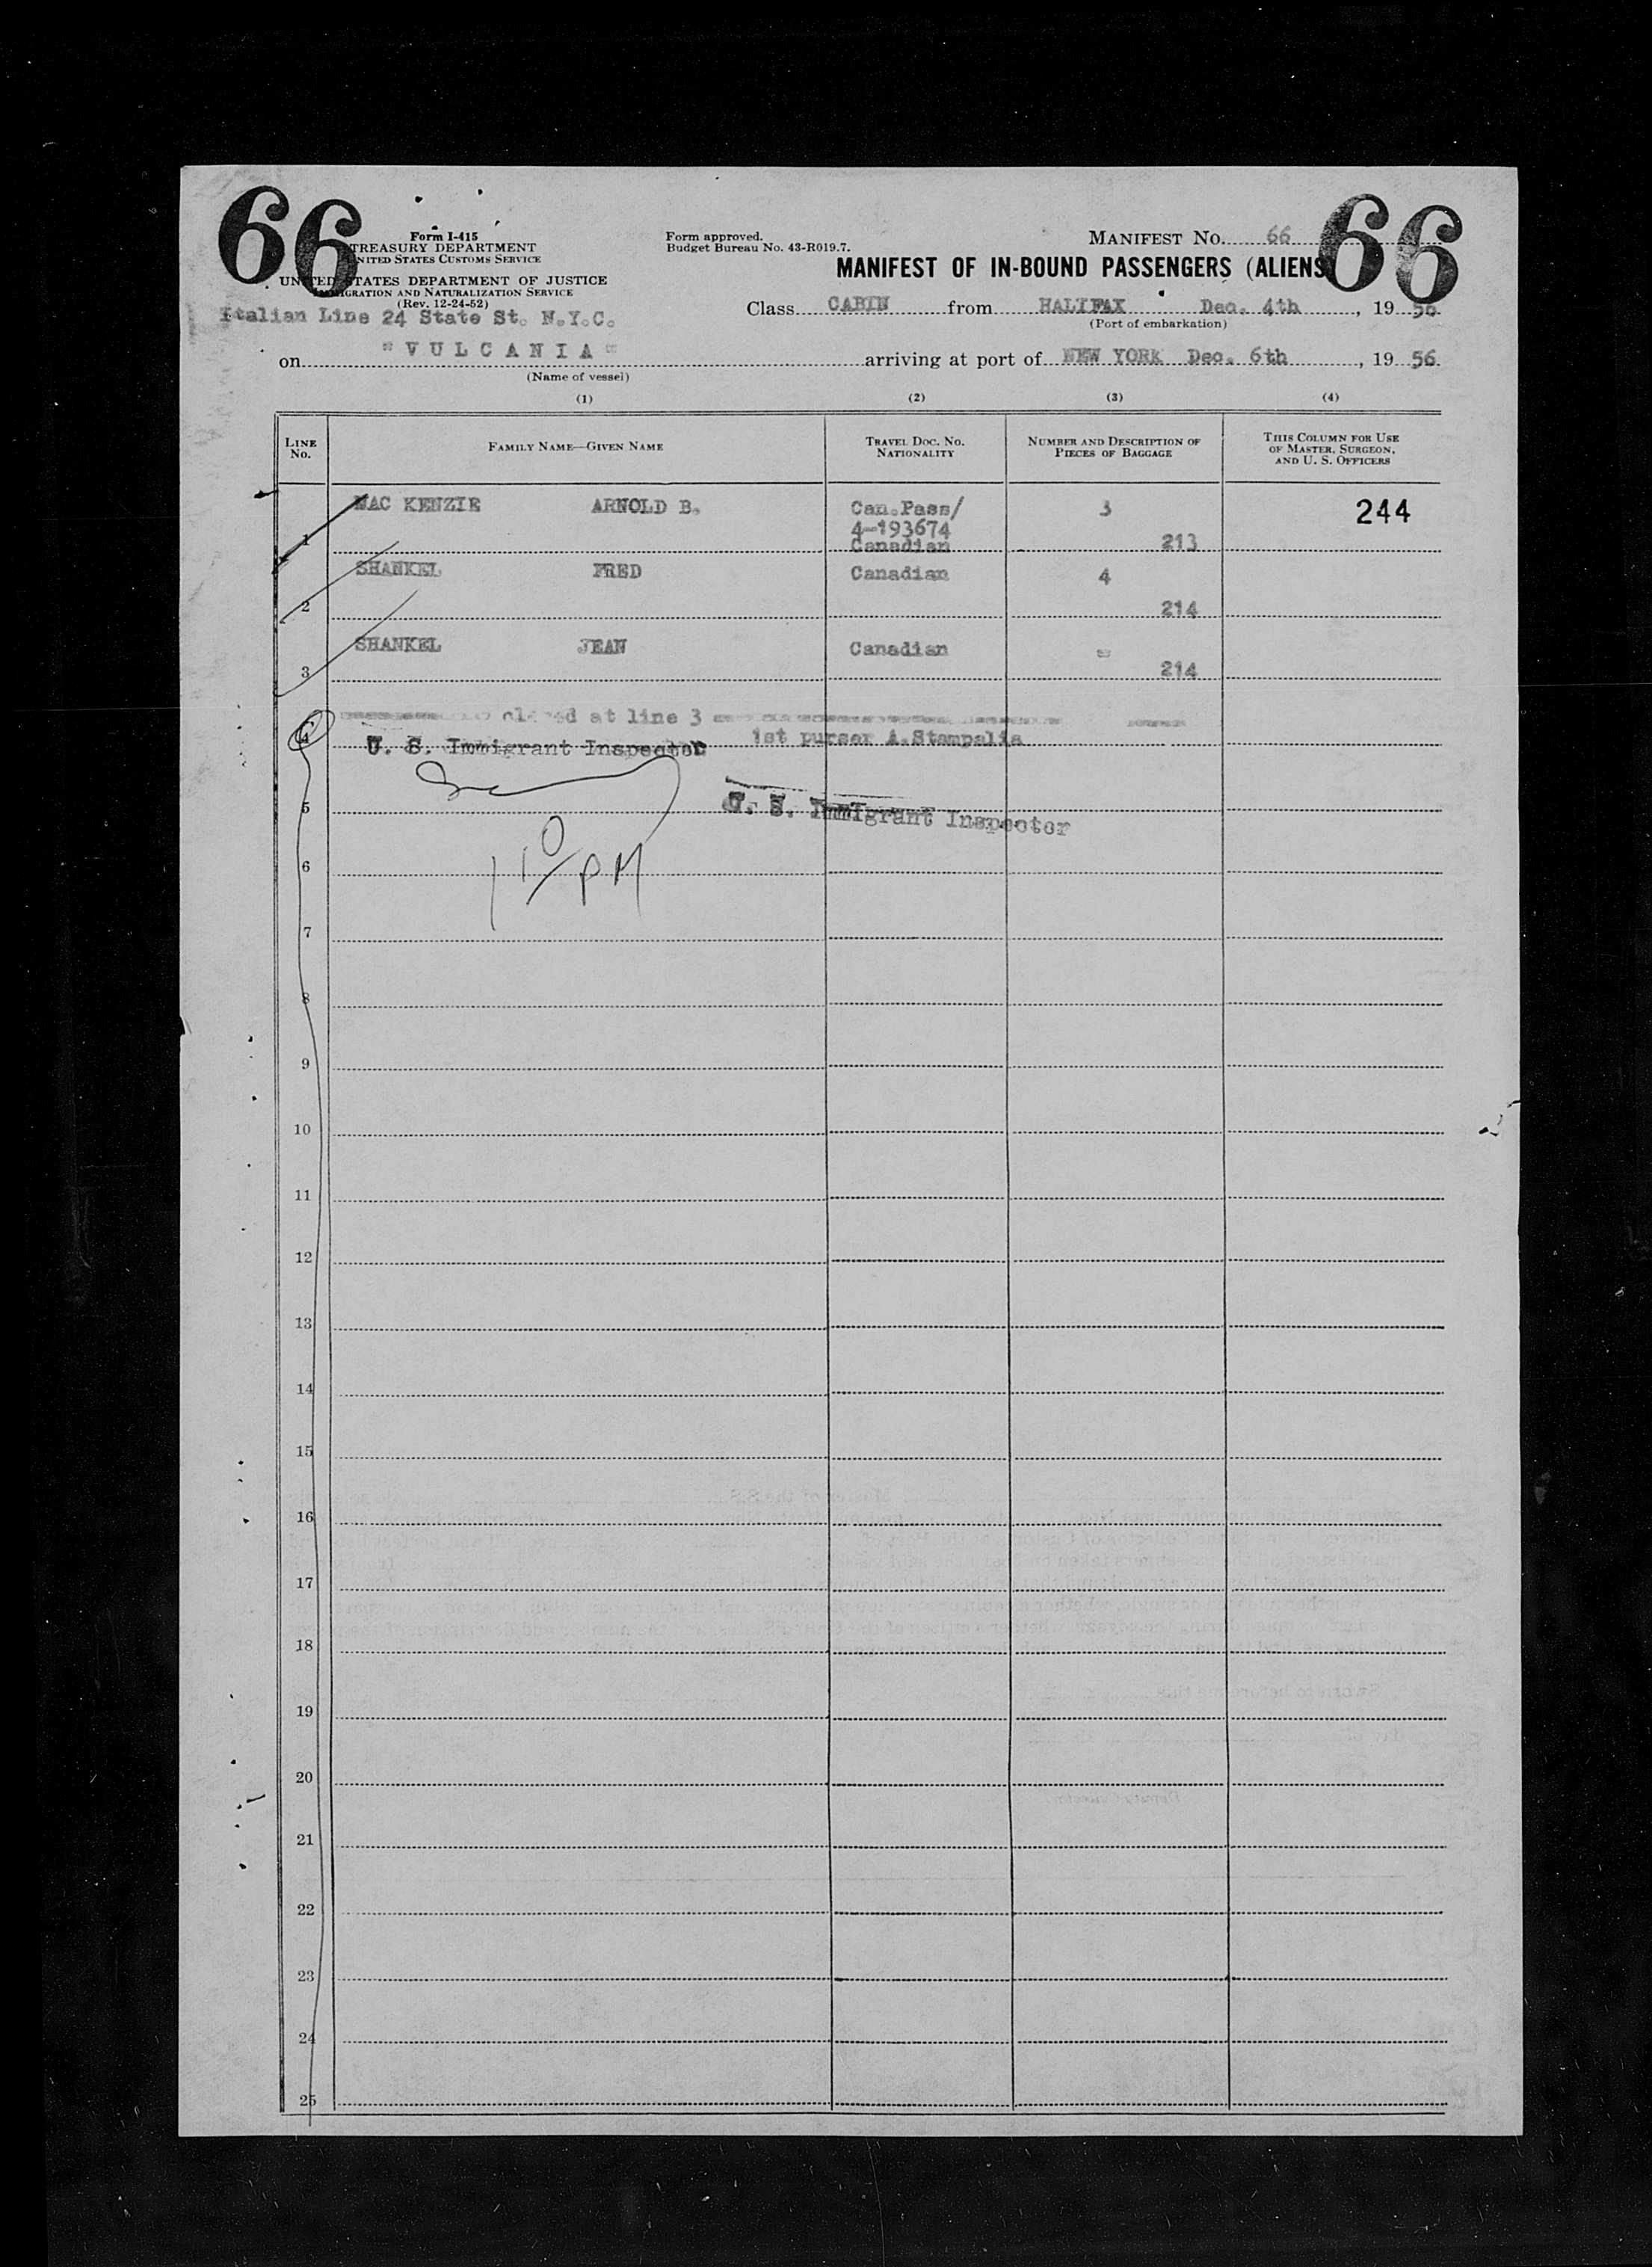 66
66
Form I-415
TREASURY DEPARTMENT
UNITED STATES CUSTOMS SERVICE
UNITED STATES DEPARTMENT OF JUSTICE
IMMIGRATION AND NATURALIZATION SERVICE
(Rev. 12-24-52)
Form approved.
Budget Bureau No. 43-R019.7.
MANIFEST No. 66
MANIFEST OF IN-BOUND PASSENGERS (ALIENS
Italian Line 24 State St. N.Y.C.
Class CABIN from HALIFAX Dec. 4th, 19 56
(Port of embarkation)
on "VULCANIA" arriving at port of NEW YORK Dec. 6th, 19 56
(Name of vessel)
(1) (2) (3) (4)
LINE No. FAMILY NAME—GIVEN NAME TRAVEL DOC. No. NATIONALITY NUMBER AND DESCRIPTION OF PIECES OF BAGGAGE THIS COLUMN FOR USE OF MASTER, SURGEON, AND U. S. OFFICERS
1 MAC KENZIE ARNOLD B. Can.Pass/ 4-193674 Canadian 3 213 244
2 SHANKEL FRED Canadian 4 214
3 SHANKEL JEAN Canadian 214
4 closed at line 3
1st purser A.Stampalia
U. S. Immigrant Inspector
5
U. S. Immigrant Inspector
6 110/PM
7
8
9
10
11
12
13
14
15
16
17
18
19
20
21
22
23
24
25